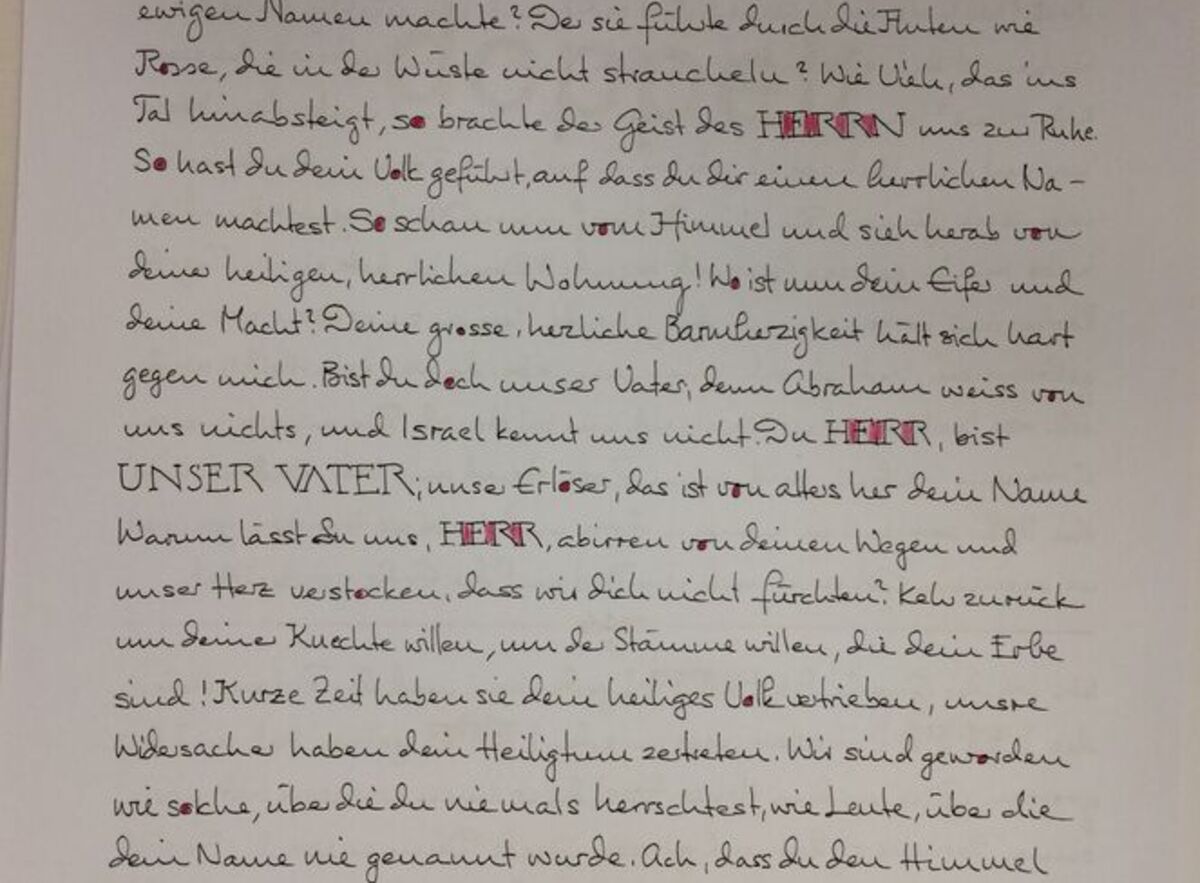 ewigen Namen machte? Der sie führte durch die Fluten wie
Rosse, die in der Wüste nicht straucheln? Wie Vieh, das ins
Tal hinabsteigt, so brachte der Geist des HERRN uns zur Ruhe.
So hast du dein Volk geführt, auf dass du dir einen herrlichen Na-
men machtest. So schau nun vom Himmel und sieh herab von
deiner heiligen, herrlichen Wohnung! Wo ist nun dein Eifer und
deine Macht? Deine grosse, herzliche Barmherzigkeit hält sich hart
gegen mich. Bist du doch unser Vater; denn Abraham weiss von
uns nichts, und Israel kennt uns nicht. Du HERR, bist
UNSER VATER; unser Erlöser, das ist von alters her dein Name
Warum lässt du uns, HERR, abirren von deinen Wegen und
unser Herz verstocken, dass wir dich nicht fürchten? Kehr zurück
um deiner Knechte willen, um der Stämme willen, die dein Erbe
sind! Kurze Zeit haben sie dein heiliges Volk vertrieben, unsre
Widersacher haben dein Heiligtum zertreten. Wir sind geworden
wie solche, über die du niemals herrschtest, wie Leute, über die
dein Name nie genannt wurde. Ach, dass du den Himmel